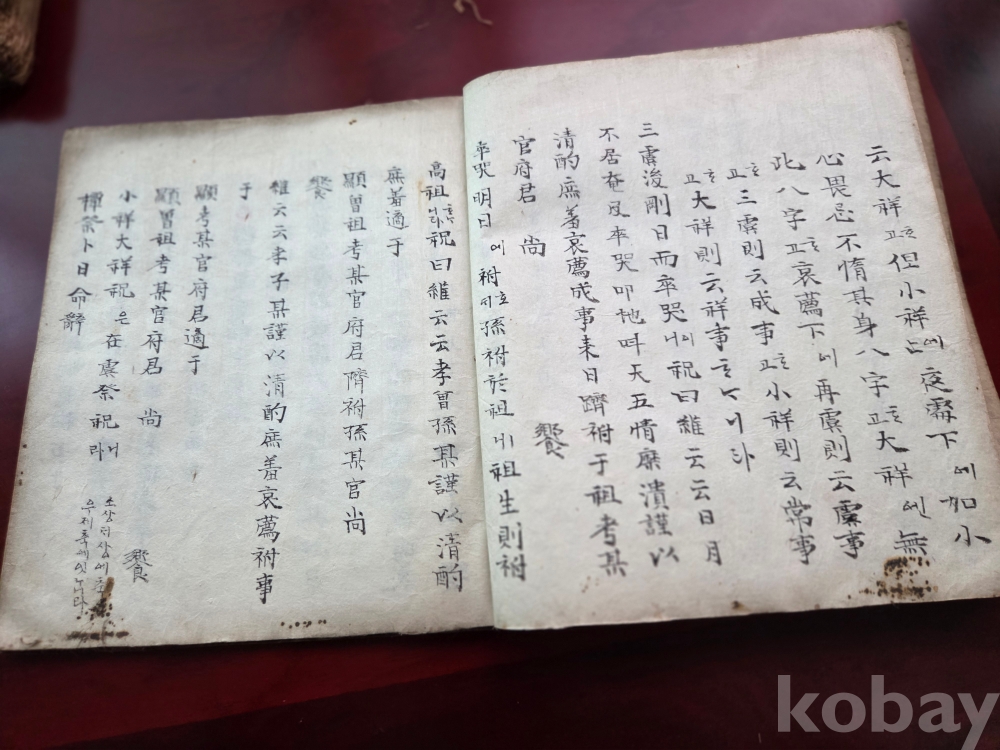 云大祥고但小祥는夜處下에加小
心畏忌不惰其身八字고大祥엔無
此八字고哀薦下에再虞則云虞事
고三虞則云成事고小祥則云常事
고大祥則云祥事
三虞後剛日而卒哭에祝曰維云云日月
不居奄及卒哭叩地呌天五情糜潰謹以
清酌庶羞哀薦成事来日隮祔于祖考某
官府君 尚
饗
卒哭明日에祔孫祔於祖祖生則祔
高祖祝曰維云云孝曾孫某謹以清酌
庶羞適于
顯曾祖考某官府君隮祔孫某官尚
饗
維云云孝子某謹以清酌庶羞哀薦祔事
于
顯考某官府君適于
顯曾祖考某官府君 尚
饗
小祥大祥祝은在虞祭祝라
禫祭卜日命辭
kobay